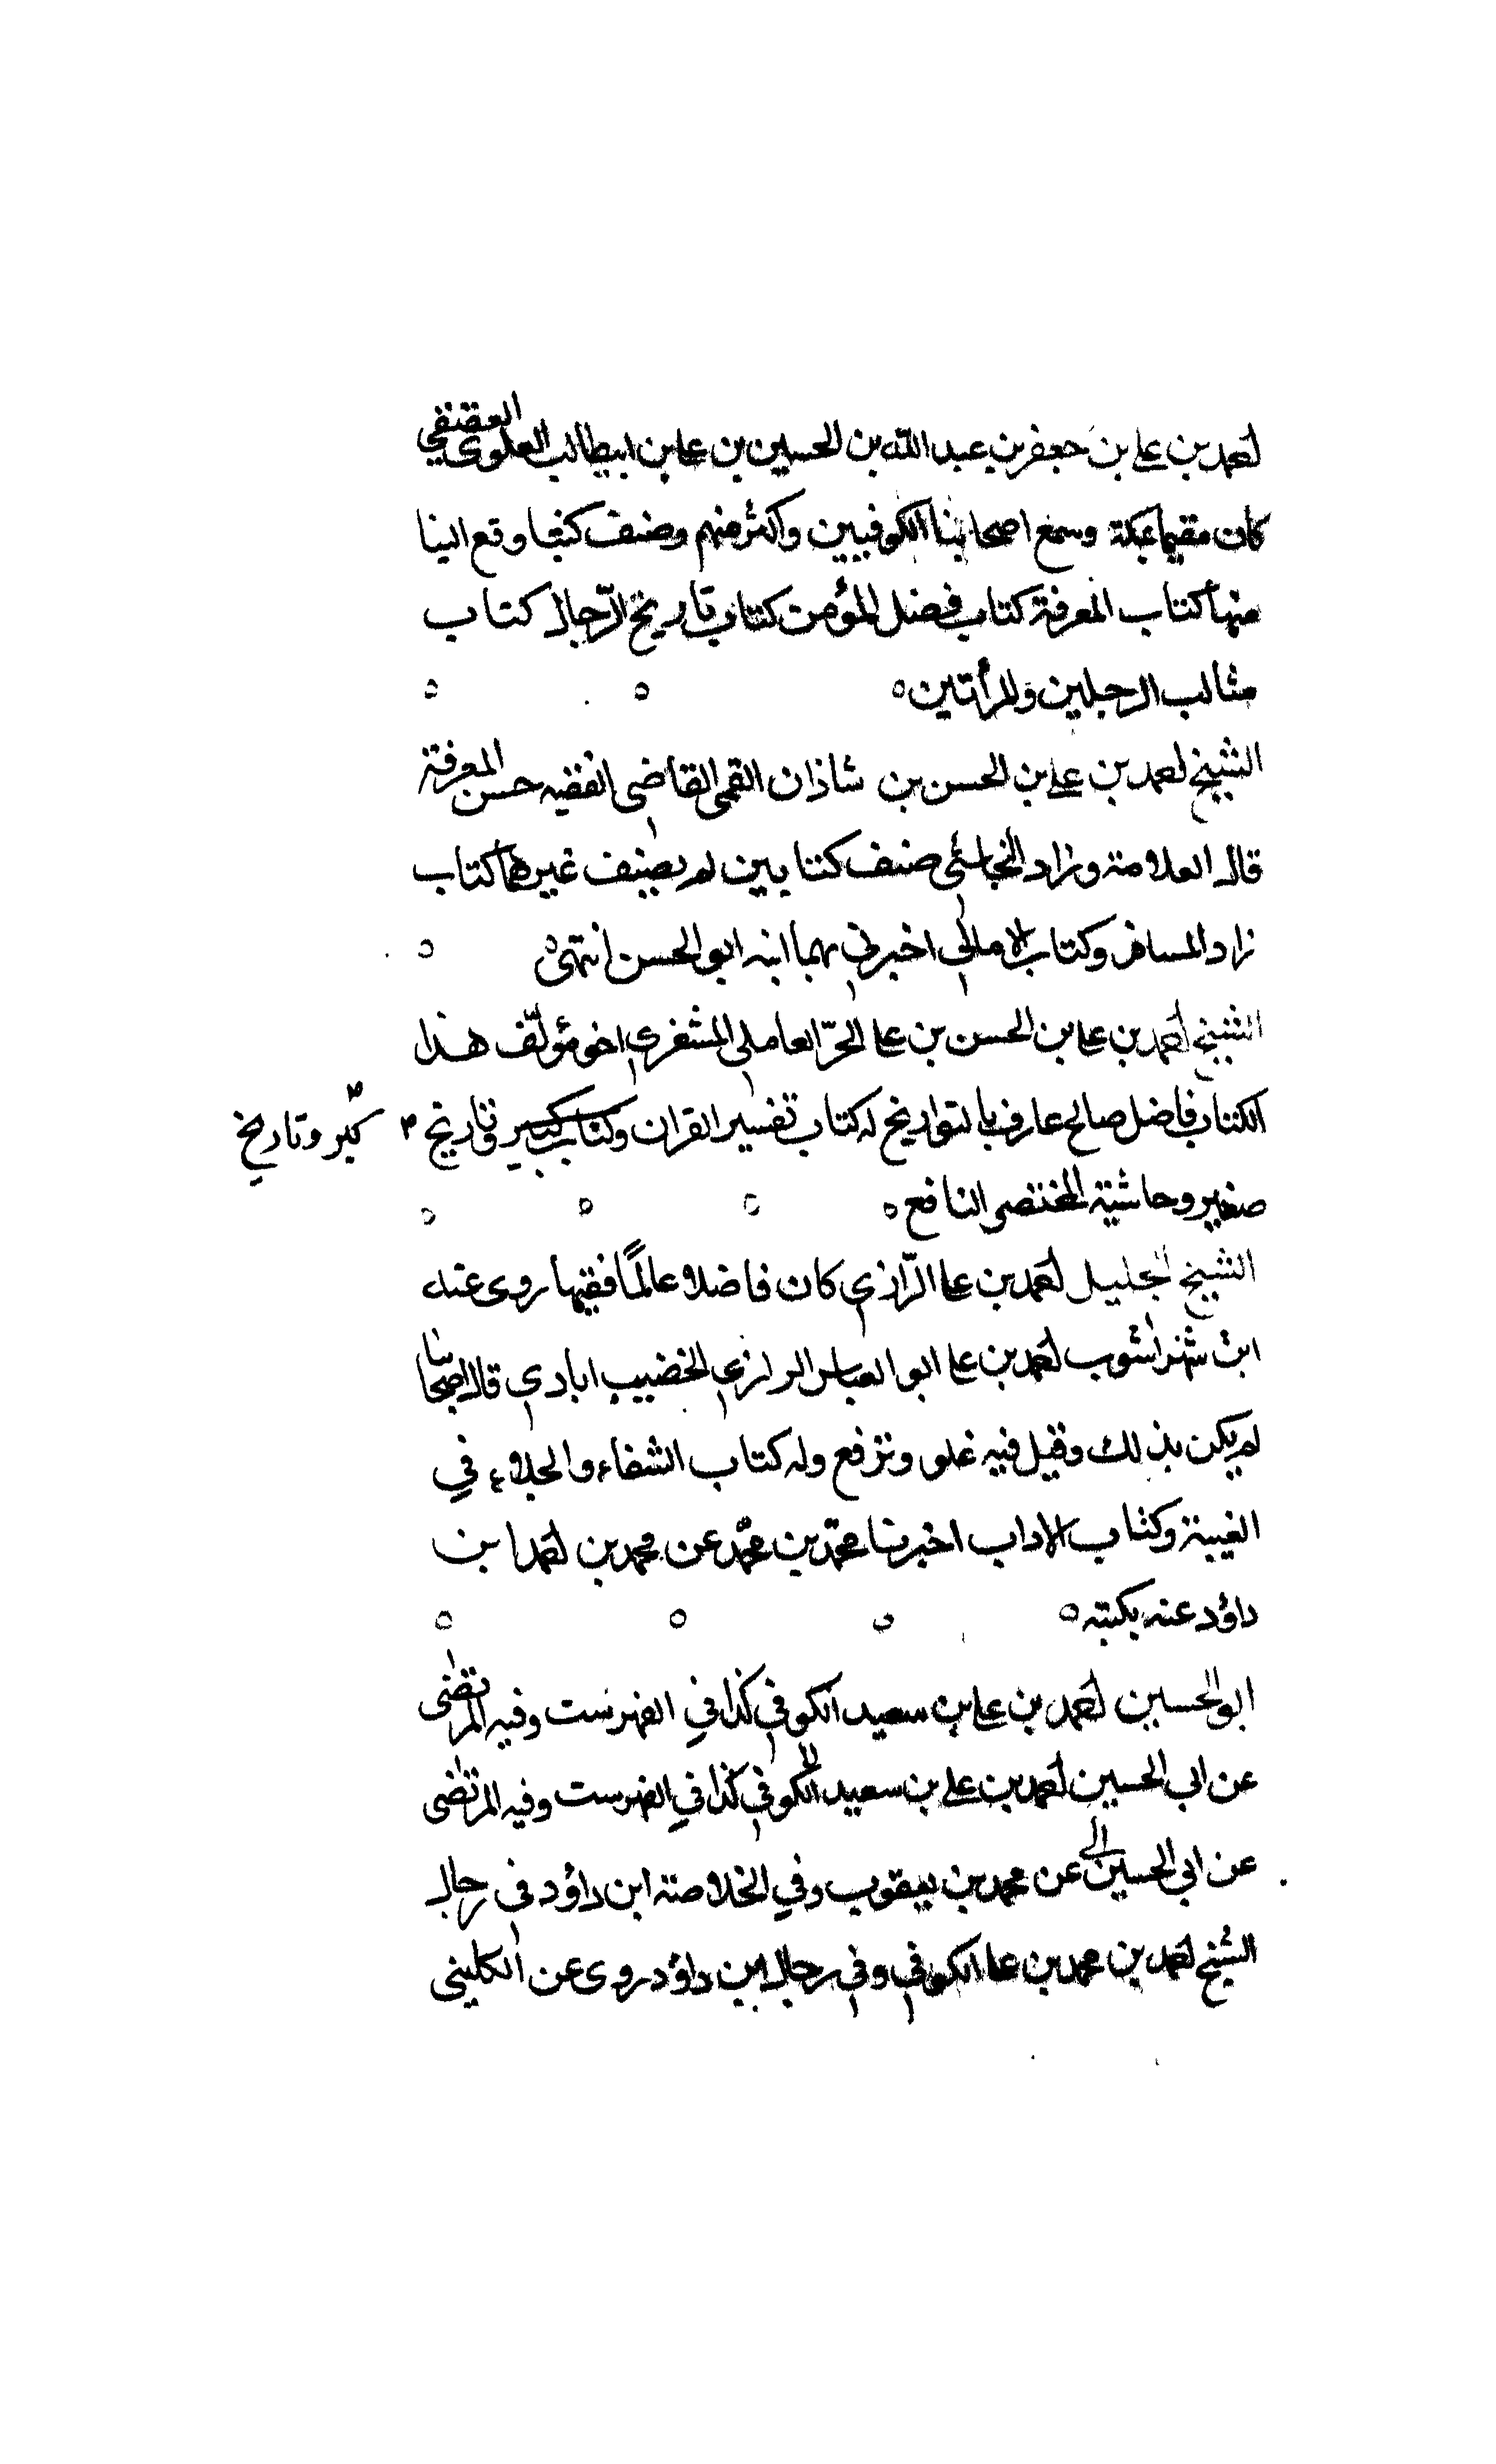 احمد بن علي بن جعفر بن عبد الله بن الحسين بن علي بن ابيطالب العلوي العقيقي
كان مقيما بمكة وسمع اصحابنا الكوفيين واكثر منهم وصنف كتبا وقع الينا
منها كتاب المعرفة كتاب فضل المؤمن كتاب تاريخ الرّجال كتاب
مثالب الرجلين والمرأتين
الشيخ احمد بن علي بن الحسن بن شاذان القمي القاضي الفقيه حسن المعرفة
قاله العلامة وزاد النجاشي صنف كتابين لم يصنف غيرهما كتاب
زاد المسافر وكتاب الامالي اخبرني بهما ابنه ابو الحسن انتهى
الشيخ احمد بن علي بن الحسن بن علي الحرّ العاملي المشغري اخو مؤلّف هذا
الكتاب فاضل صالح عارف بالتواريخ له كتاب تفسير القران وكتاب كبير وتاريخ كبير وتاريخ
صغير وحاشية المختصر النافع
الشيخ الجليل احمد بن علي الرّازي كان فاضلا عالمًا فقيها روى عنه
ابن شهراشوب احمد بن علي ابو العباس الرازي الخضيب ابادي قال اصحابنا
لم يكن بذلك وقيل فيه غلو وترفع وله كتاب الشفاء والجلاء في
الغيبة وكتاب الاداب اخبرنا محمّد بن محمّد عن محمد بن احمد ابن
داؤد عنه بكتبه
ابو الحسين احمد بن علي بن سعيد الكوفي كذا في الفهرست وفيه المرتضى
عن ابي الحسين احمد بن علي بن سعيد الكوفي كذا في الفهرست وفيه المرتضى
عن ابي الحسين عن محمد بن يعقوب وفي الخلاصة ابن داؤد في رجال
الشيخ احمد بن محمد بن علي الكوفي وفي رجال ابن داؤد روى عن الكليني